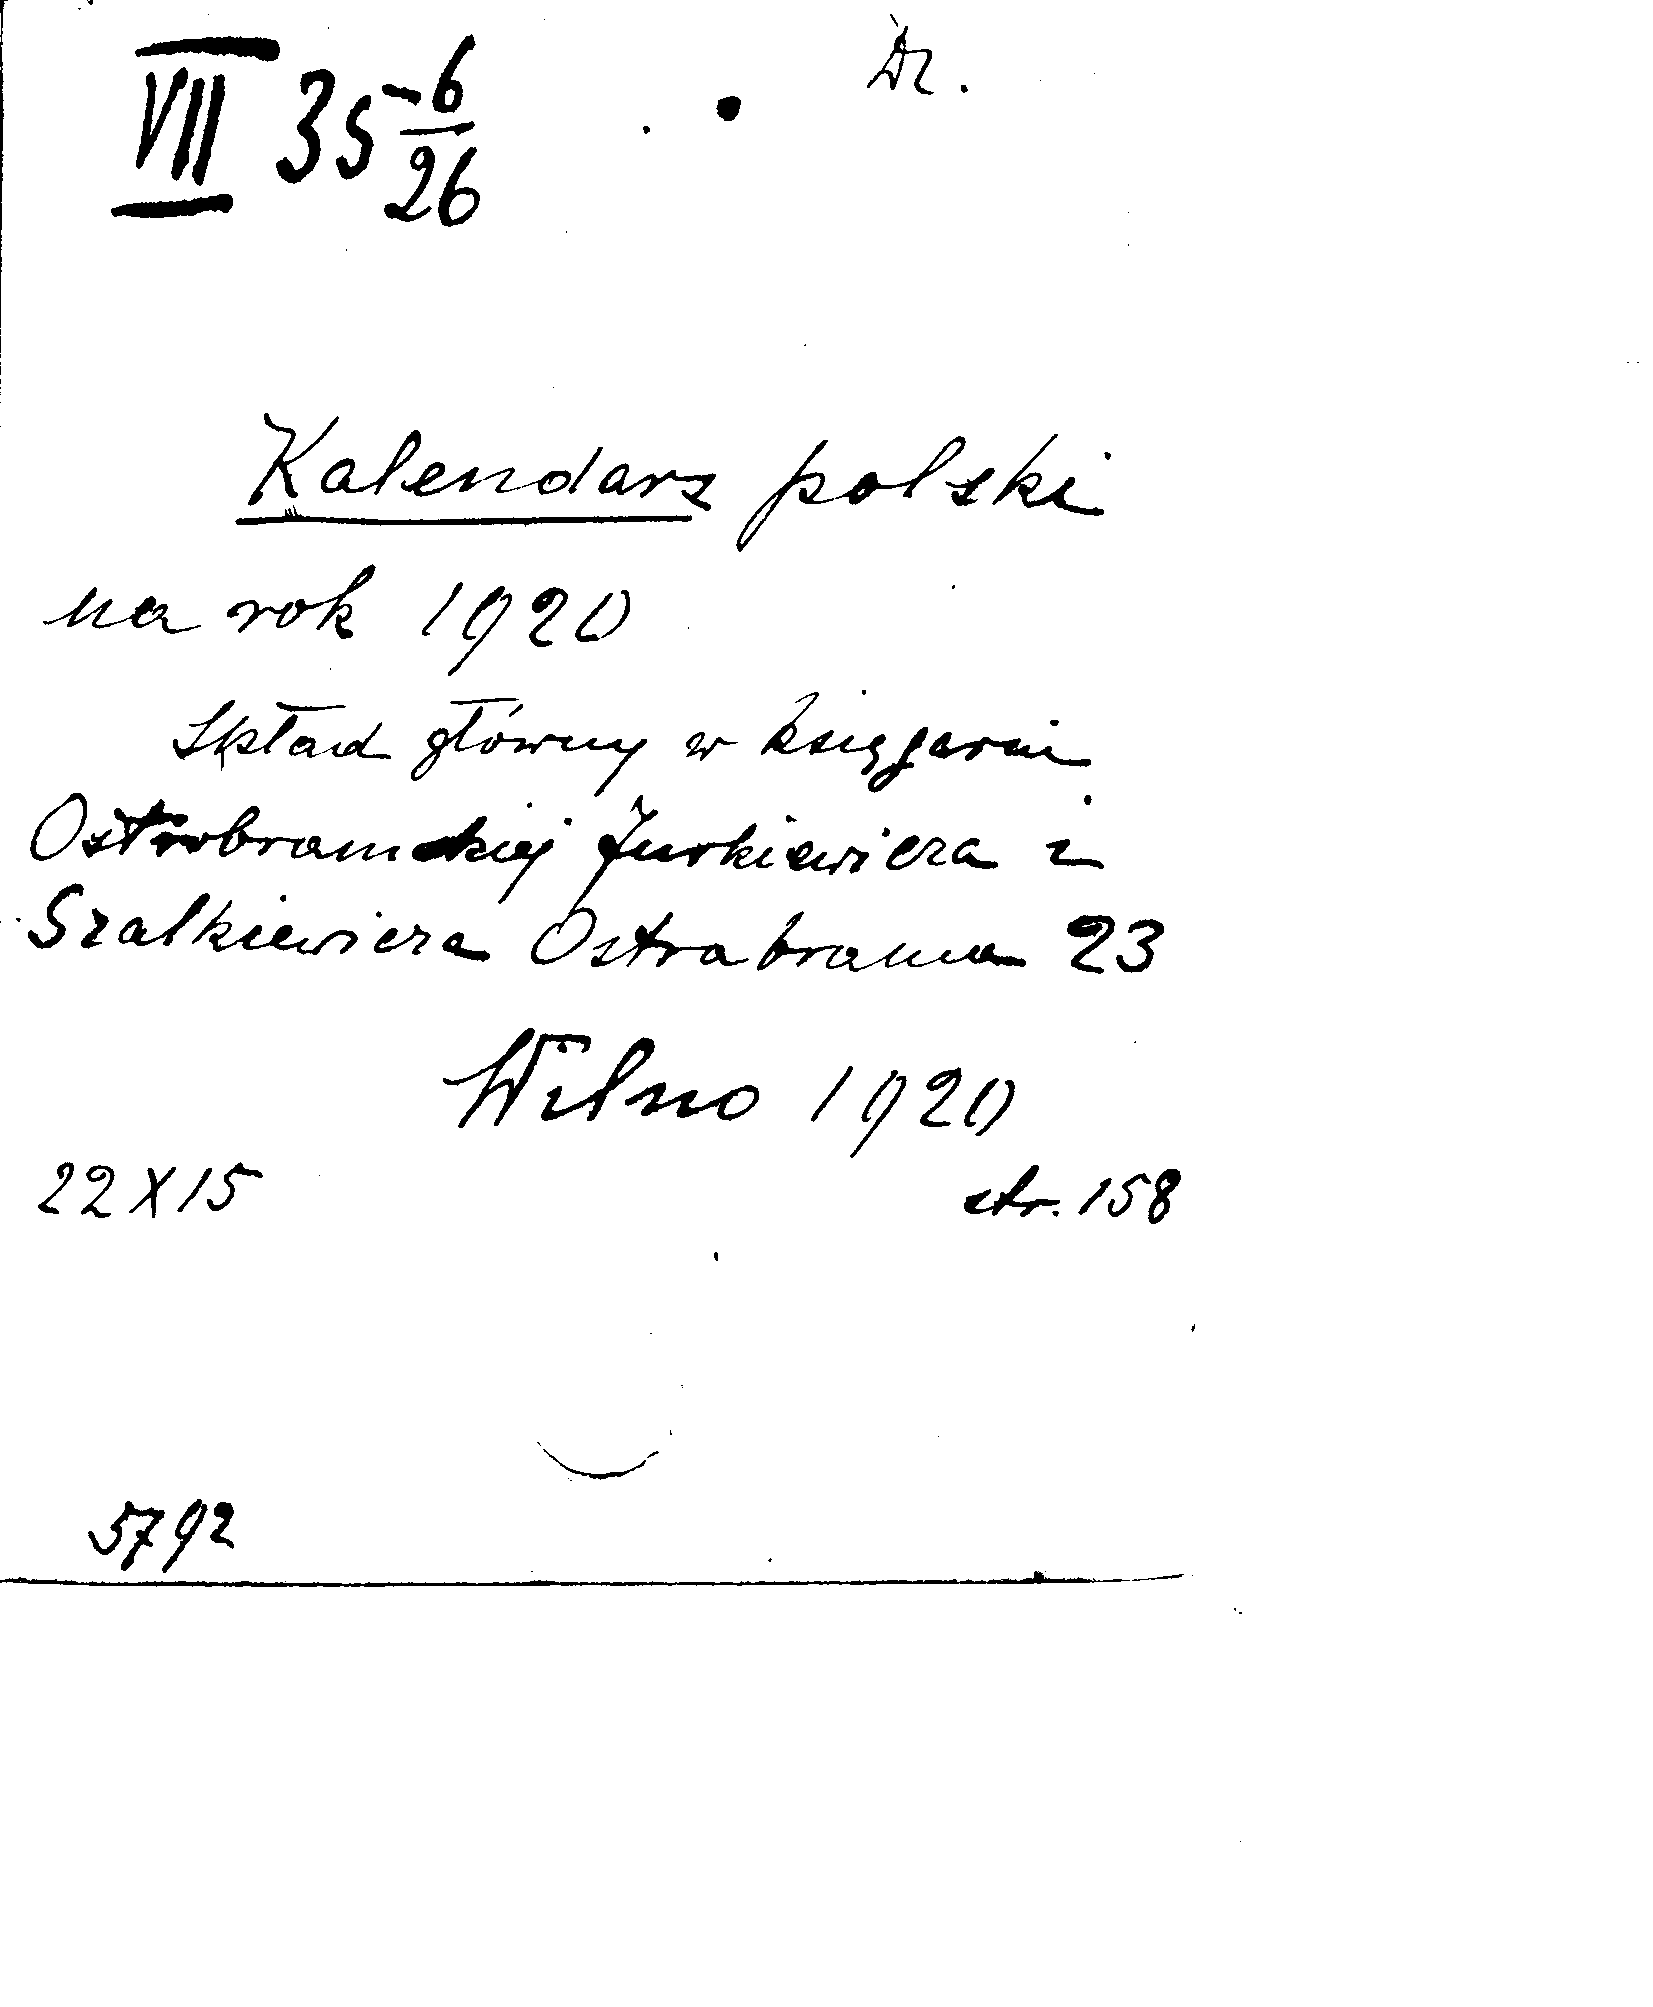 VII 35-6/26
Dr.
Kalendarz polski
na rok 1920
Skład główny w księgarni
Ostrobramskiej Żurkiewicza i
Szalkiewicza Ostrabrama 23
Wilno 1920
22 X 15 str. 158
5792